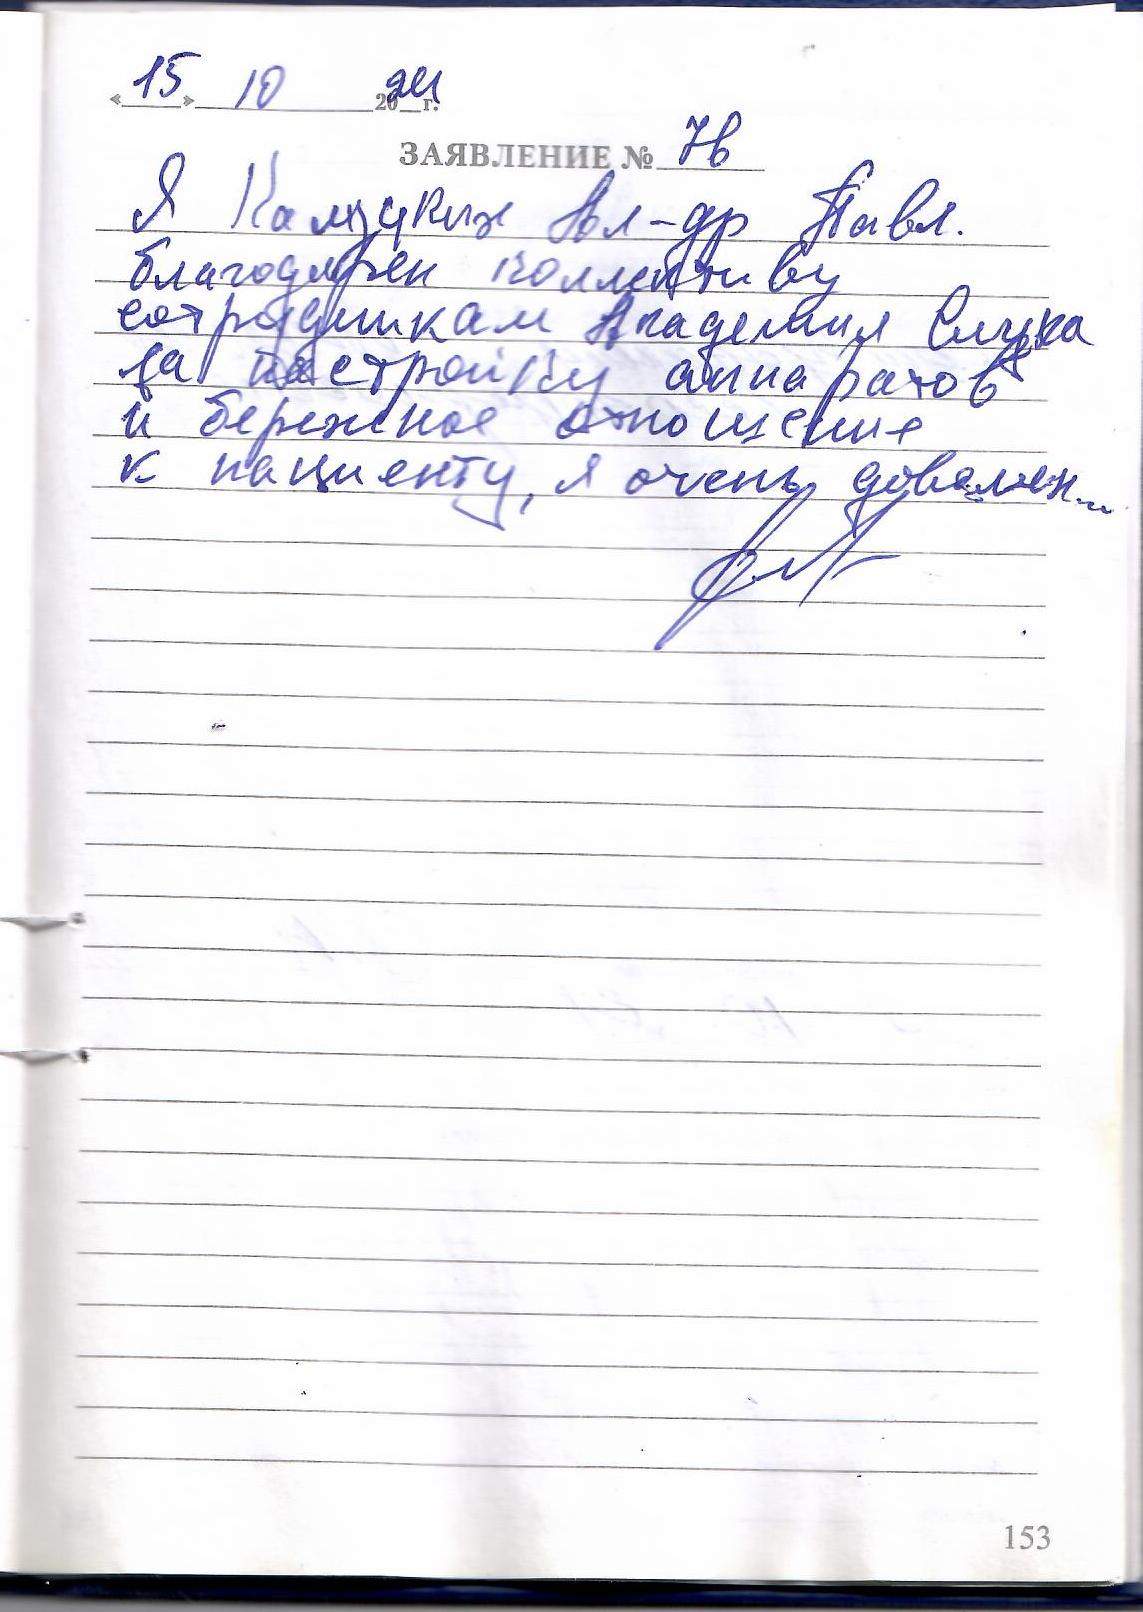 «15» 10 2024 г.
ЗАЯВЛЕНИЕ № 7в
Я Ал-др Павл.
благодарен коллективу
сотрудникам Академия Слуха
за настройку аппаратов
и бережное отношение
к пациенту, я очень доволен...
153